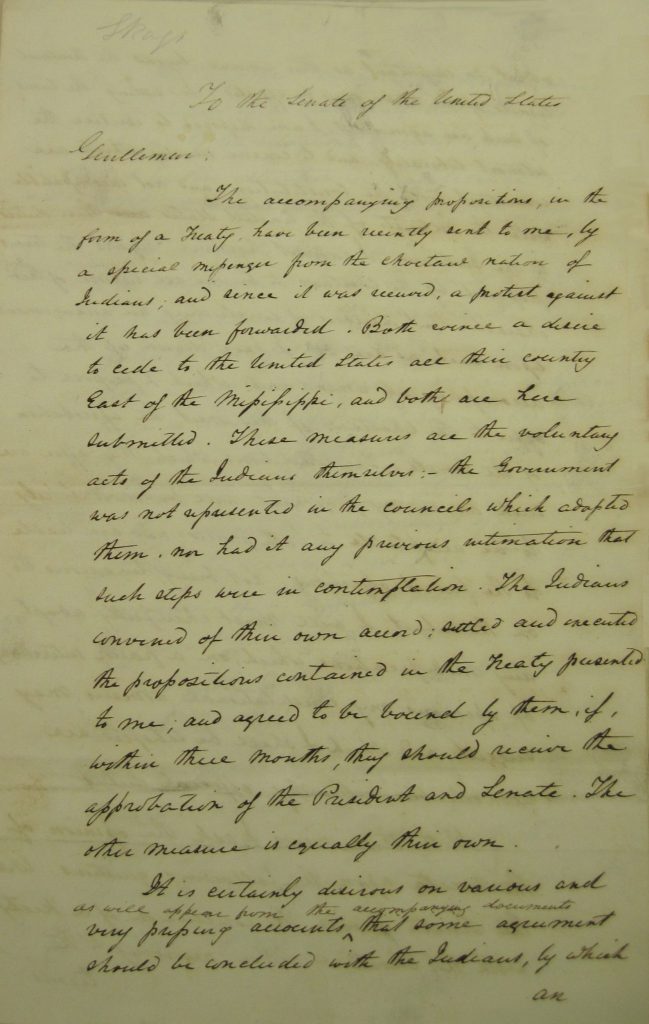 To the Senate of the United States
Gentlemen:
The accompanying propositions, in the
form of a Treaty, have been recently sent to me, by
a special messenger from the Choctaw nation of
Indians; and since it was received, a protest against
it has been forwarded. Both evince a desire
to cede to the United States all their country
East of the Mississippi, and both are here
submitted. These measures are the voluntary
acts of the Indians themselves:- the Government
was not represented in the councils which adopted
them, nor had it any previous intimation that
such steps were in contemplation. The Indians
convened of their own accord; settled and executed
the propositions contained in the Treaty presented
to me; and agreed to be bound by them, if,
within three months, they should receive the
approbation of the President and Senate. The
other measure is equally their own.
It is certainly desirous on various and
as will appear from the accompanying documents
very pressing accounts, ^ that some agreement
should be concluded with the Indians, by which
an